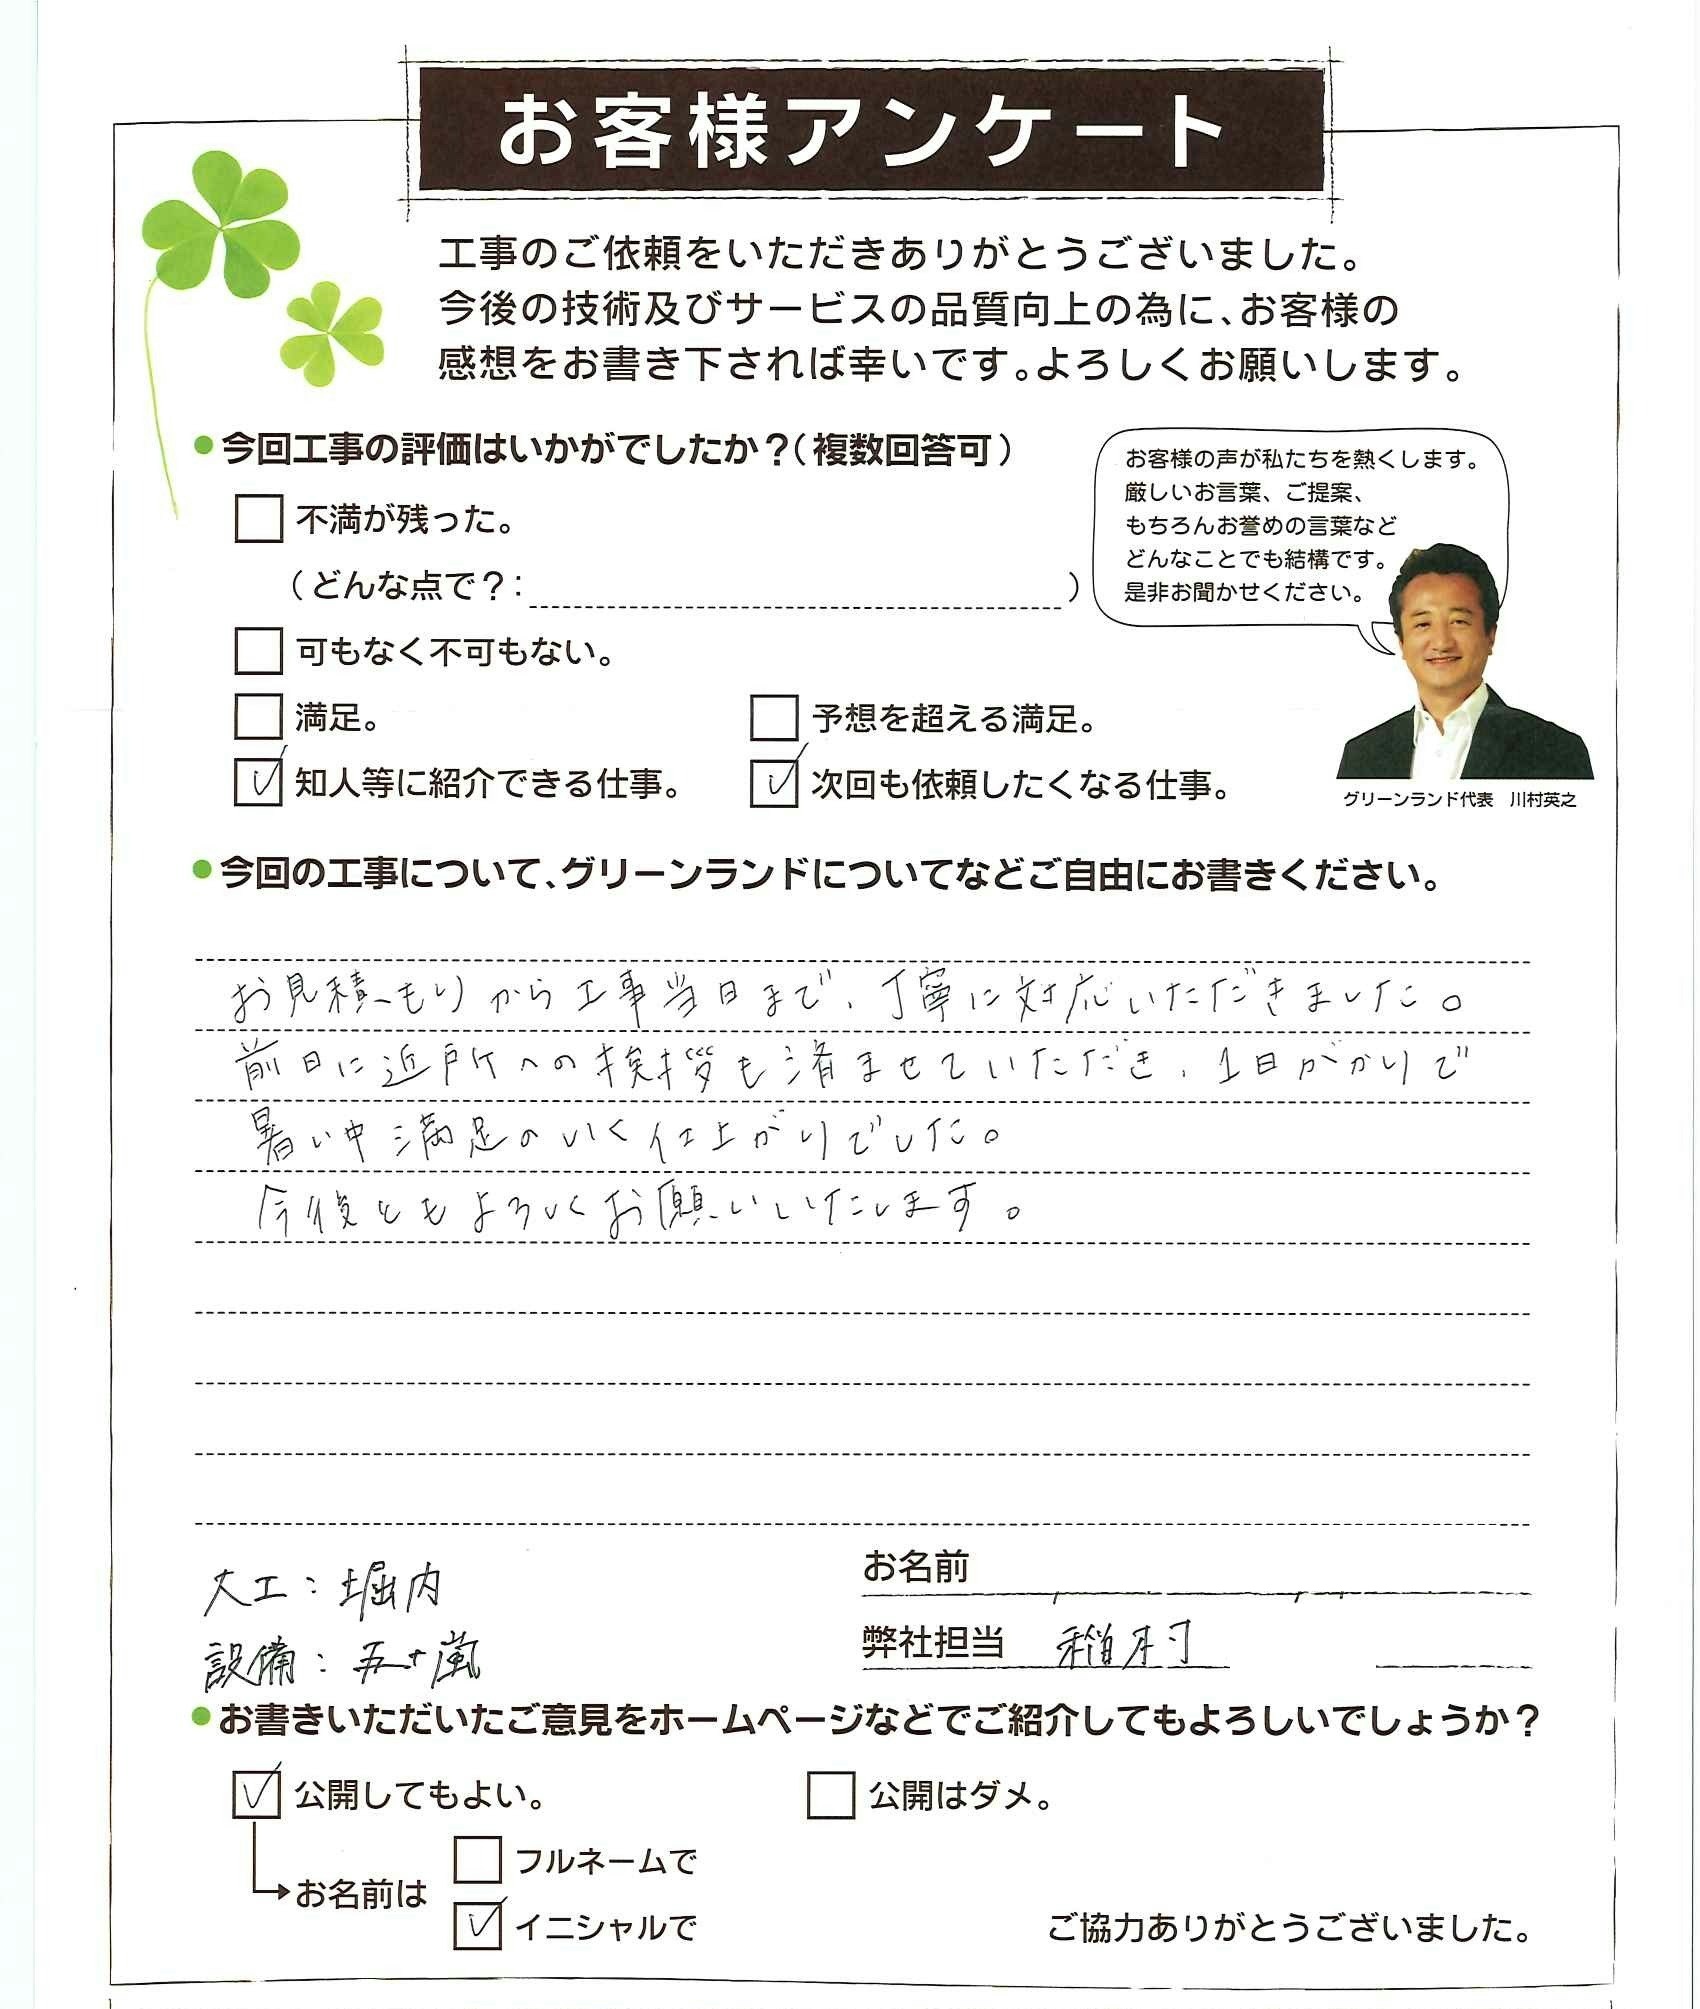 お客様アンケート
工事のご依頼をいただきありがとうございました。
今後の技術及びサービスの品質向上の為に、お客様の
感想をお書き下されば幸いです。よろしくお願いします。
●今回工事の評価はいかがでしたか？（複数回答可）
不満が残った。
（どんな点で？：　）
可もなく不可もない。
満足。
予想を超える満足。
知人等に紹介できる仕事。
次回も依頼したくなる仕事。
お客様の声が私たちを熱くします。
厳しいお言葉、ご提案、
もちろんお誉めの言葉など
どんなことでも結構です。
是非お聞かせください。
グリーンランド代表　川村英之
●今回の工事について、グリーンランドについてなどご自由にお書きください。
お見積もりから工事当日まで、丁寧に対応いただきました。
前日に近所への挨拶も済ませていただき、1日がかりで
暑い中満足のいく仕上がりでした。
今後ともよろしくお願いいたします。
大工：堀内
設備：五十嵐
お名前
弊社担当　稲村
●お書きいただいたご意見をホームページなどでご紹介してもよろしいでしょうか？
公開してもよい。
公開はダメ。
お名前は
フルネームで
イニシャルで
ご協力ありがとうございました。